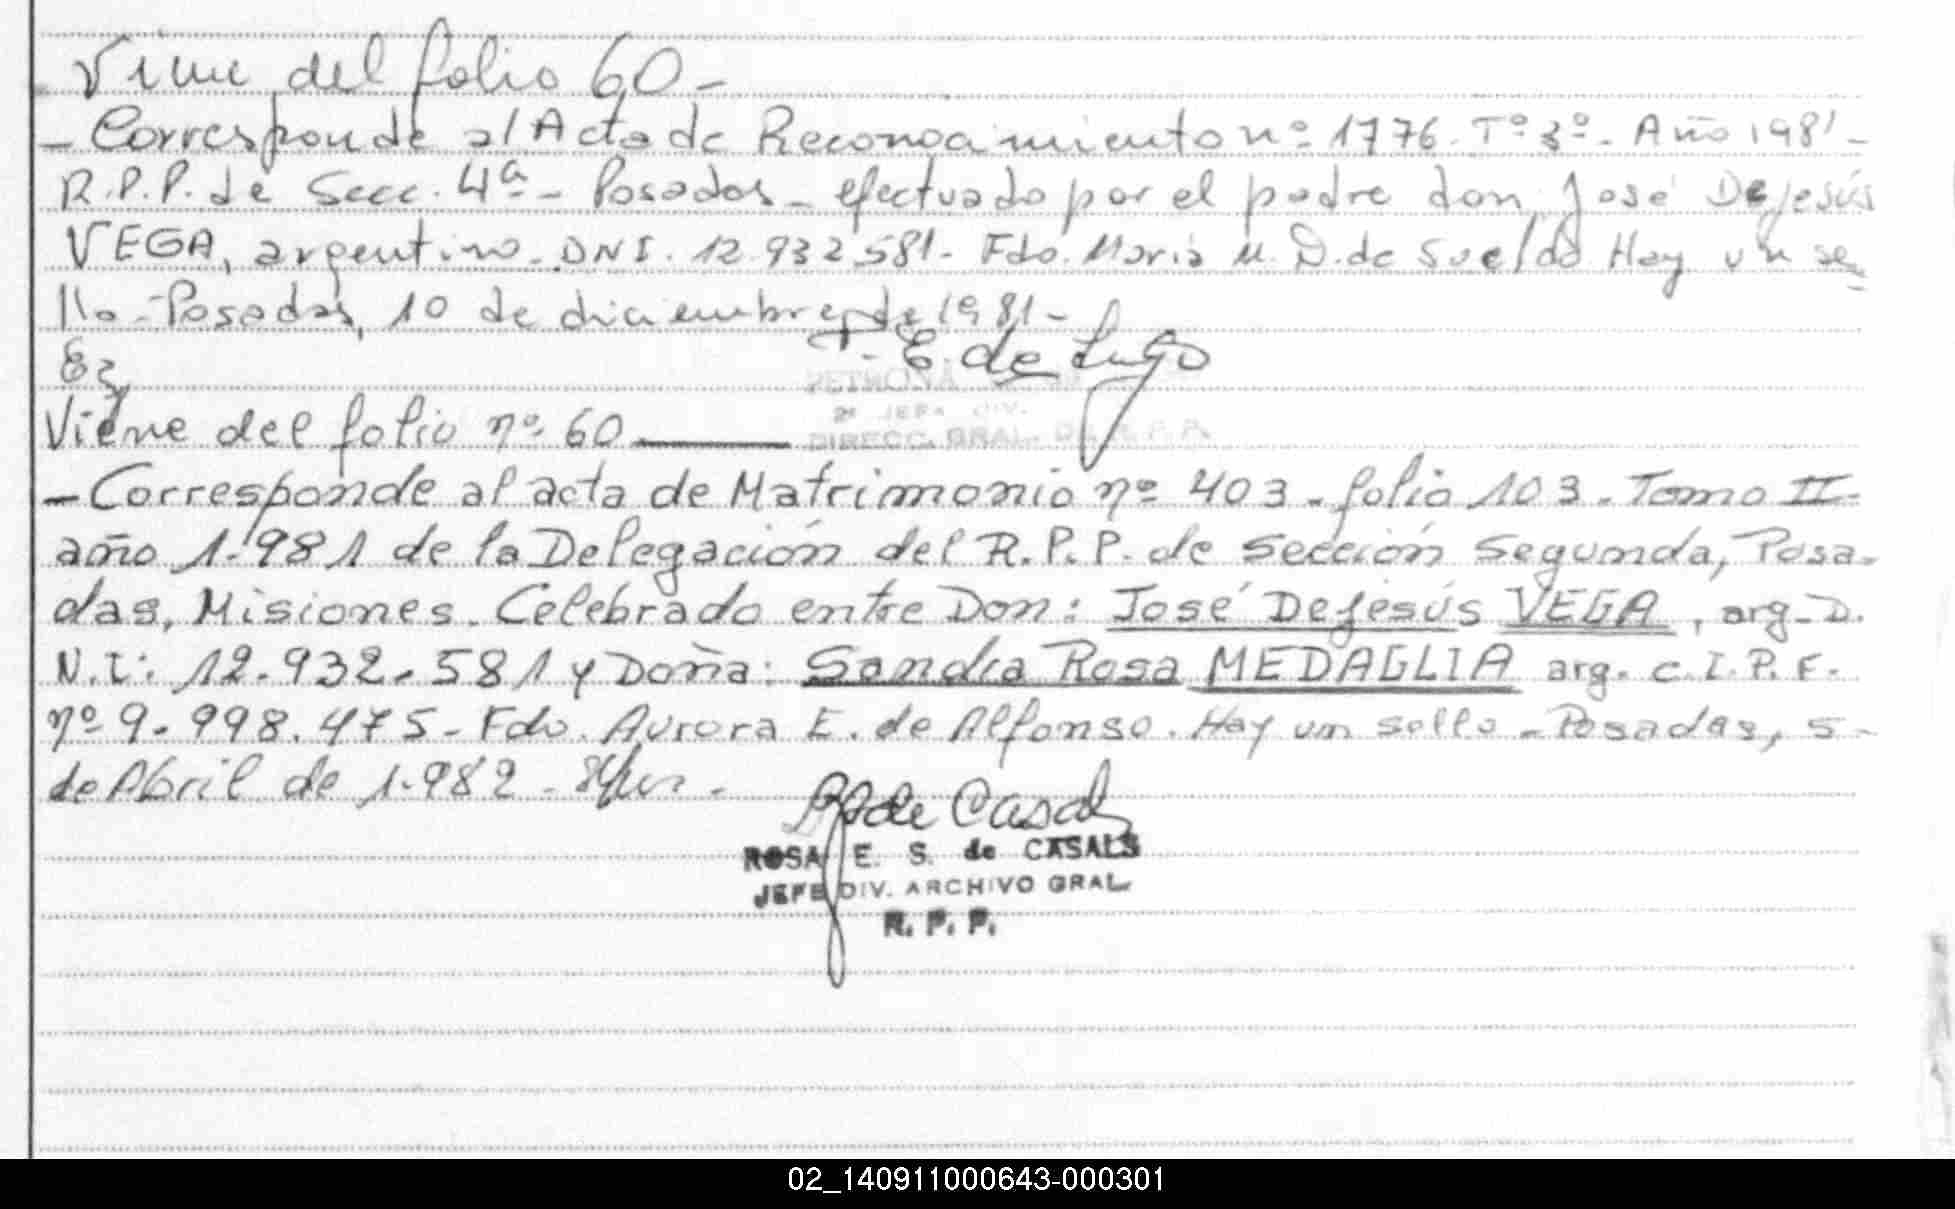 Viene del folio 60 -
- Corresponde al Acta de Reconocimiento nº 1776. Tº 3º - Año 1981 -
R.P.P. de Secc. 4ª - Posadas - efectuado por el padre don José Dejesús
VEGA, argentino - DNI. 12.932.581 - Fdo. Maria M. D. de Sueldo Hay un se
llo - Posadas, 10 de diciembre de 1981 -
Ez
T. E. de Lugo
PETRONA
2º JEFA DIV.
DIRECC. GRAL. DE R. P. P.
Viene del folio nº 60
- Corresponde al acta de Matrimonio nº 403 - folio 103 - Tomo II -
año 1.981 de la Delegación del R.P.P. de Sección Segunda, Posa-
das, Misiones. Celebrado entre Don: José Dejesús VEGA, arg - D.
N.I: 12.932.581 y Doña: Sandra Rosa MEDAGLIA arg. C.I.P.F.
nº 9.998.475 - Fdo. Aurora E. de Alfonso. Hay un sello - Posadas, 5 -
de Abril de 1.982 -
de Casals
ROSA E. S. de CASALS
JEFE DIV. ARCHIVO GRAL.
R. P. P.
02_140911000643-000301